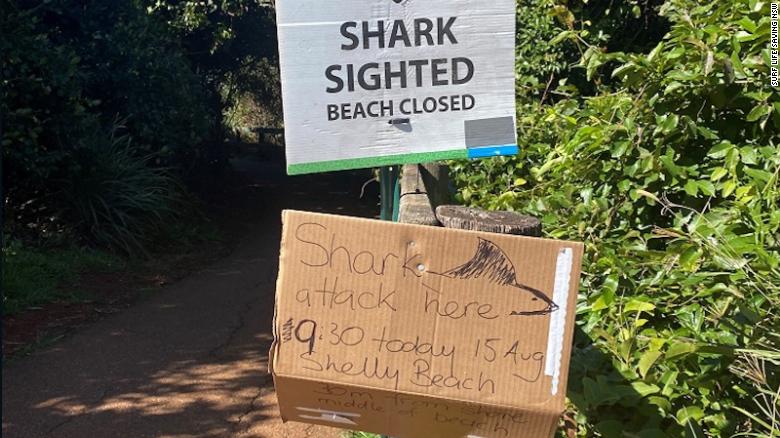 SHARK
SIGHTED
BEACH CLOSED
Shark
attack here
9:30 today 15 Aug
Shelly Beach
from shore
middle of beach
SURF LIFE SAVING NSW